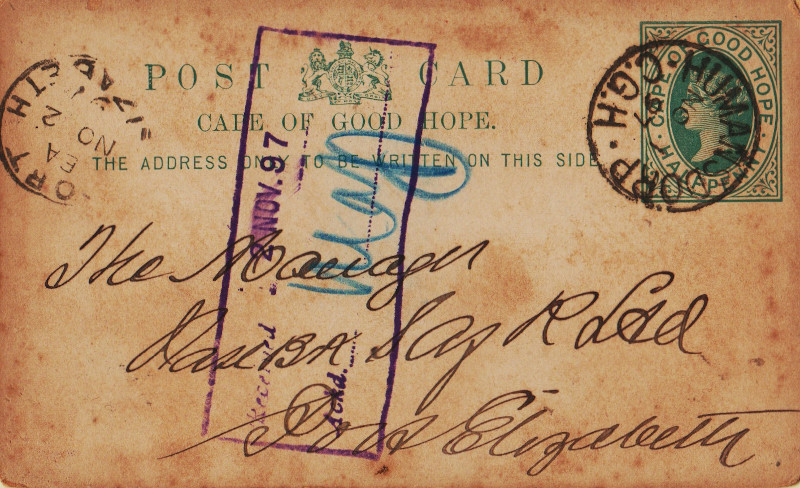 POST CARD
CAPE OF GOOD HOPE.
THE ADDRESS ONLY TO BE WRITTEN ON THIS SIDE.
CAPE OF GOOD HOPE
HALFPENNY
HUMANSDORP · C.G.H
PORT
NO
Received NOV. 97
Ackd.
The Manager
Port Elizabeth